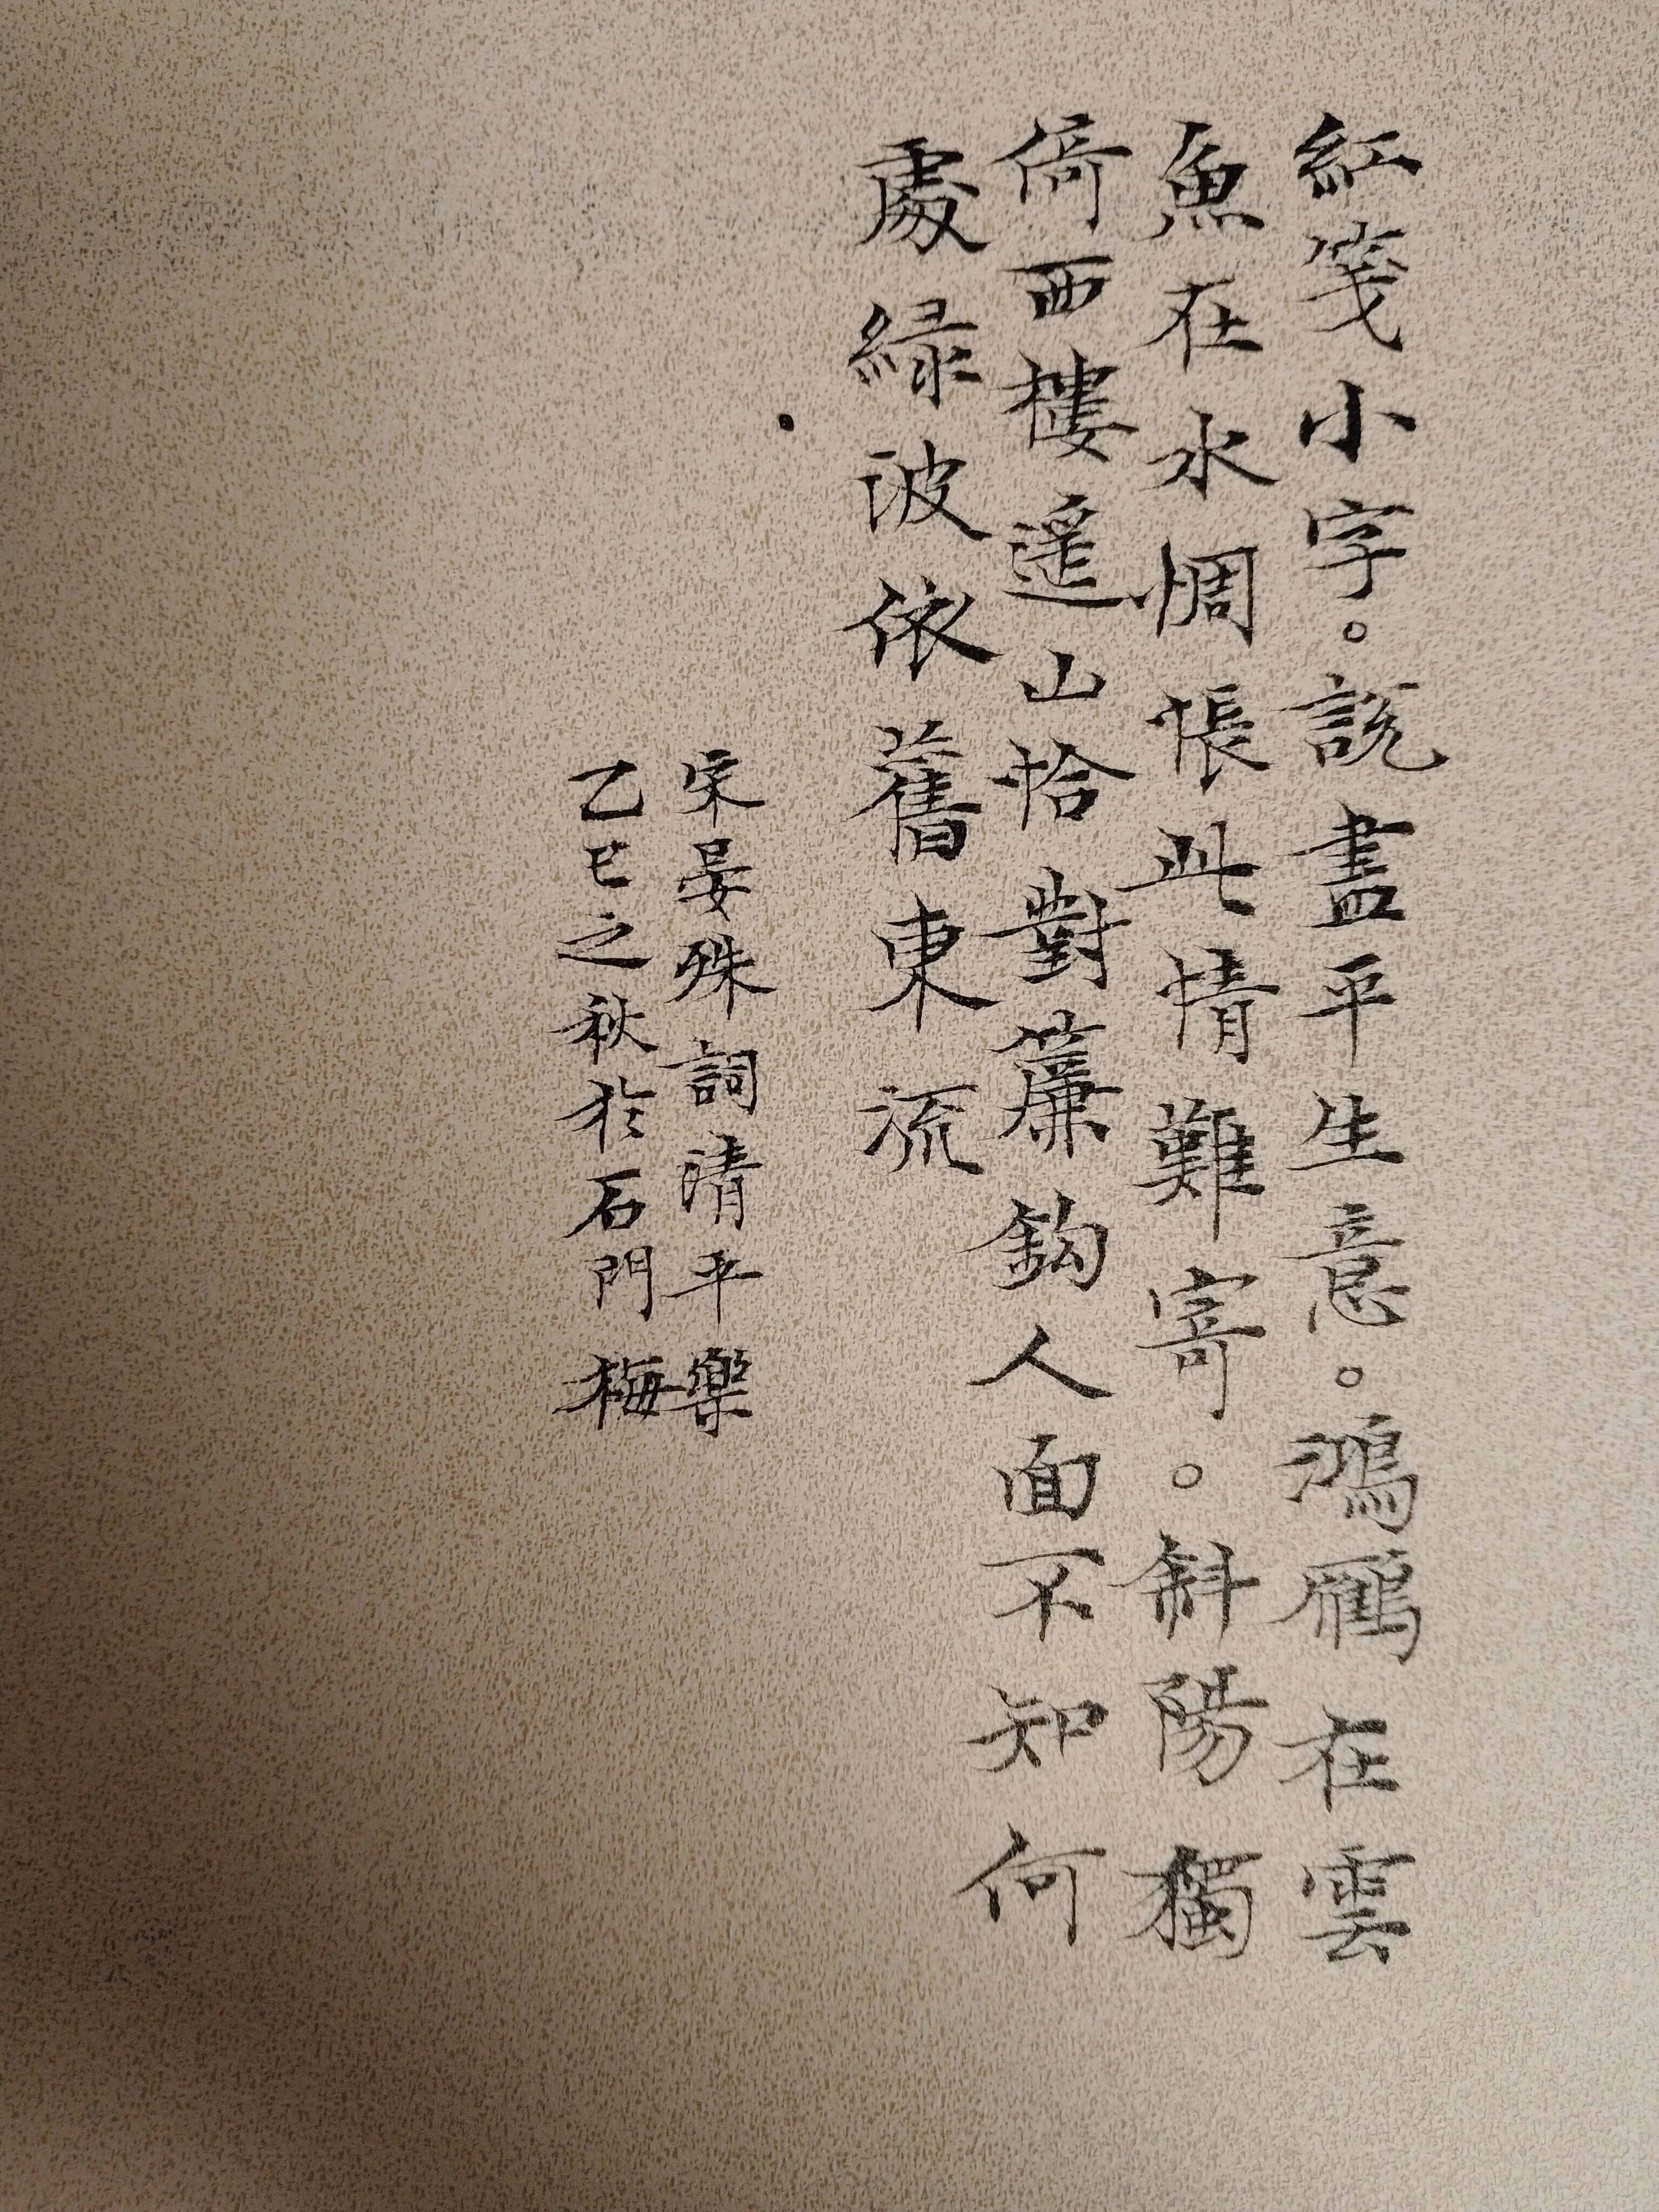 紅箋小字。說盡平生意。鴻鴈在雲
魚在水惆悵此情難寄。斜陽獨
倚西樓遥山恰對簾鈎人面不知何
處緑波依舊東流
宋晏殊詞清平樂
乙巳之秋於石門梅